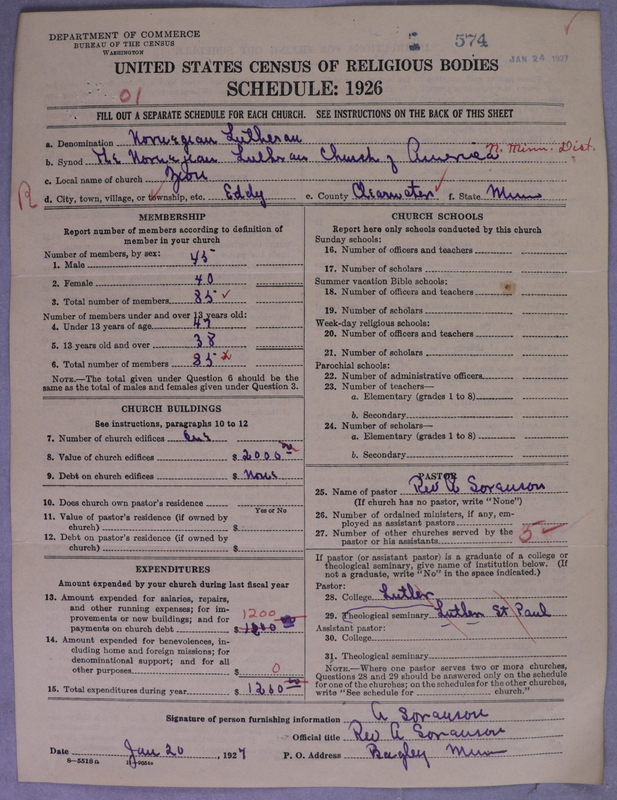 DEPARTMENT OF COMMERCE
BUREAU OF THE CENSUS
WASHINGTON
574
JAN 24 1927
UNITED STATES CENSUS OF RELIGIOUS BODIES
SCHEDULE: 1926
01
FILL OUT A SEPARATE SCHEDULE FOR EACH CHURCH. SEE INSTRUCTIONS ON THE BACK OF THIS SHEET
a. Denomination Norwegian Lutheran
b. Synod The Norwegian Lutheran Church of America N. Minn. Dist.
c. Local name of church Zion
R d. City, town, village, or township, etc. Eddy e. County Clearwater f. State Minn
MEMBERSHIP
Report number of members according to definition of
member in your church
Number of members, by sex:
1. Male 45
2. Female 40
3. Total number of members 85
Number of members under and over 13 years old:
4. Under 13 years of age 47
5. 13 years old and over 38
6. Total number of members 85
NOTE.—The total given under Question 6 should be the
same as the total of males and females given under Question 3.
CHURCH BUILDINGS
See instructions, paragraphs 10 to 12
7. Number of church edifices One
8. Value of church edifices $ 2000
9. Debt on church edifices $ None
10. Does church own pastor's residence
Yes or No
11. Value of pastor's residence (if owned by
church) $
12. Debt on pastor's residence (if owned by
church) $
EXPENDITURES
Amount expended by your church during last fiscal year
13. Amount expended for salaries, repairs,
and other running expenses; for im-
provements or new buildings; and for 1200
payments on church debt $
14. Amount expended for benevolences, in-
cluding home and foreign missions; for
denominational support; and for all
other purposes $ 0
15. Total expenditures during year $ 1200
CHURCH SCHOOLS
Report here only schools conducted by this church
Sunday schools:
16. Number of officers and teachers
17. Number of scholars
Summer vacation Bible schools:
18. Number of officers and teachers
19. Number of scholars
Week-day religious schools:
20. Number of officers and teachers
21. Number of scholars
Parochial schools:
22. Number of administrative officers
23. Number of teachers—
a. Elementary (grades 1 to 8)
b. Secondary
24. Number of scholars—
a. Elementary (grades 1 to 8)
b. Secondary
PASTOR
25. Name of pastor Rev A Soranson
(If church has no pastor, write "None")
26. Number of ordained ministers, if any, em-
ployed as assistant pastors
27. Number of other churches served by the
pastor or his assistants 5
If pastor (or assistant pastor) is a graduate of a college or
theological seminary, give name of institution below. (If
not a graduate, write "No" in the space indicated.)
Pastor:
28. College Luther
29. Theological seminary Luther St Paul
Assistant pastor:
30. College
31. Theological seminary
NOTE.—Where one pastor serves two or more churches,
Questions 28 and 29 should be answered only on the schedule
for one of the churches; on the schedules for the other churches,
write "See schedule for church."
Signature of person furnishing information A Soranson
Official title Rev A Soranson
Date Jan 20, 1927 P. O. Address Bagley Minn
8—5518a